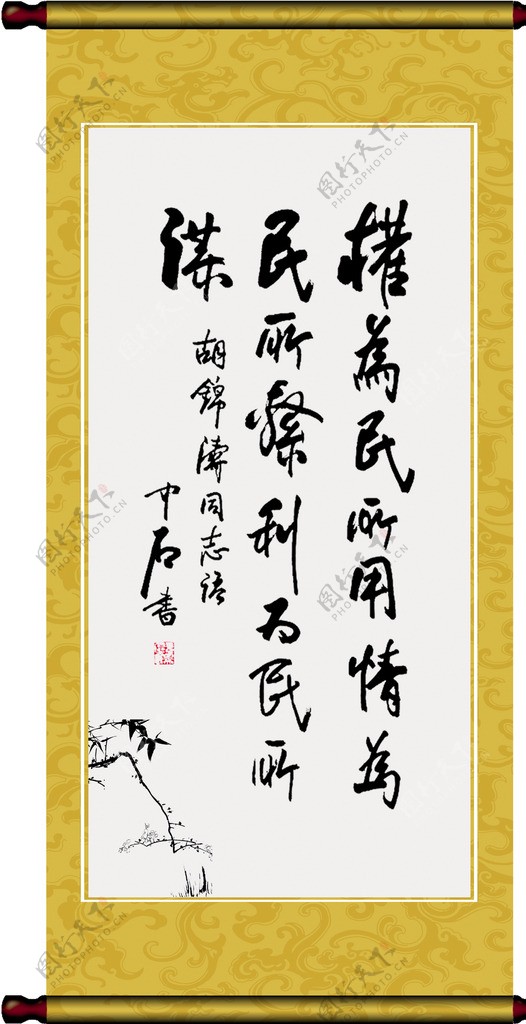 權為民所用情為
民所繫利为民所
谋
胡錦濤同志語
中石書
图行天下
PHOTOPHOTO.CN